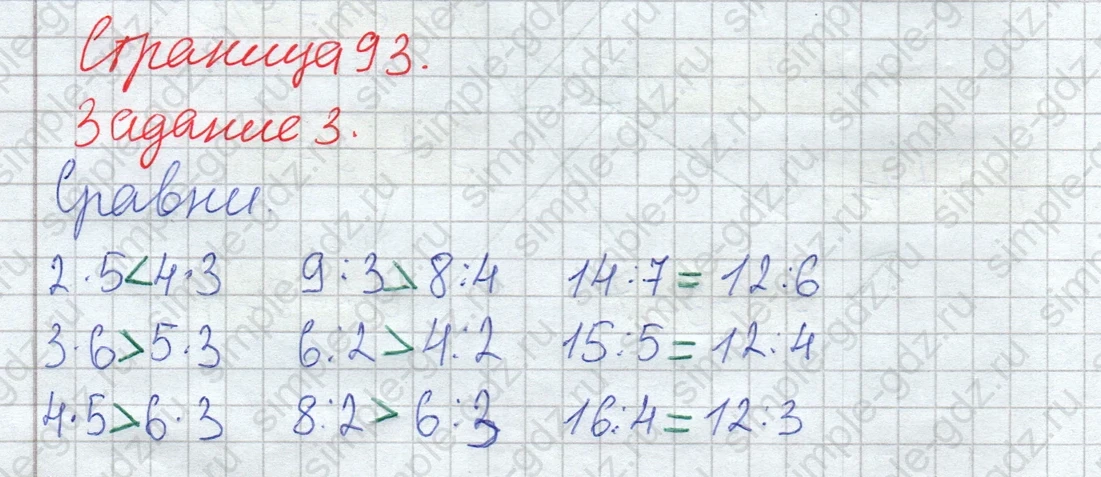 Страница 93.
Задание 3.
Сравни.
2·5<4·3 9:3>8:4 14:7=12:6
3·6>5·3 6:2>4:2 15:5=12:4
4·5>6·3 8:2>6:3 16:4=12:3
simple-gdz.ru